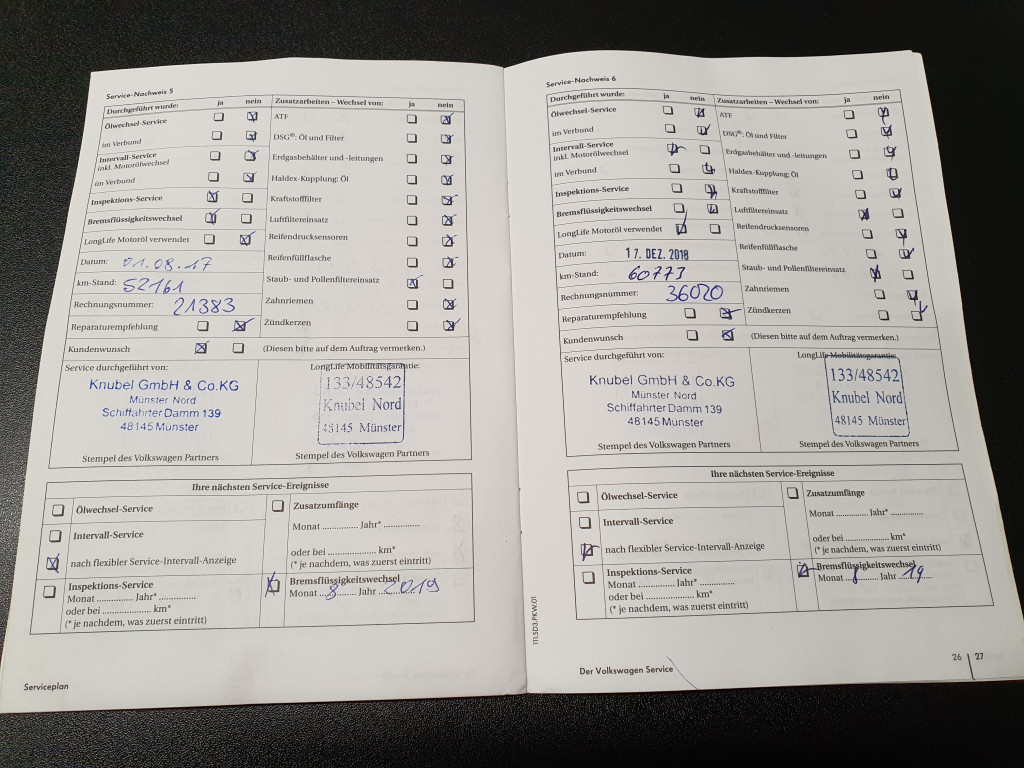 Service-Nachweis 5
Durchgeführt wurde: ja nein
Ölwechsel-Service
im Verbund
Intervall-Service
inkl. Motorölwechsel
im Verbund
Inspektions-Service
Bremsflüssigkeitswechsel
LongLife Motoröl verwendet
Datum: 01.08.17
km-Stand: 52161
Rechnungsnummer: 21383
Reparaturempfehlung
Zusatzarbeiten – Wechsel von: ja nein
ATF
DSG®: Öl und Filter
Erdgasbehälter und -leitungen
Haldex-Kupplung: Öl
Kraftstofffilter
Luftfiltereinsatz
Reifendrucksensoren
Reifenfüllflasche
Staub- und Pollenfiltereinsatz
Zahnriemen
Zündkerzen
Kundenwunsch (Diesen bitte auf dem Auftrag vermerken.)
Service durchgeführt von:
Knubel GmbH & Co.KG
Münster Nord
Schiffahrter Damm 139
48145 Münster
Stempel des Volkswagen Partners
LongLife Mobilitätsgarantie:
133/48542
Knubel Nord
48145 Münster
Stempel des Volkswagen Partners
Ihre nächsten Service-Ereignisse
Ölwechsel-Service
Intervall-Service
nach flexibler Service-Intervall-Anzeige
Zusatzumfänge
Monat .............. Jahr* ..............
oder bei .................... km*
(* je nachdem, was zuerst eintritt)
Inspektions-Service
Monat .............. Jahr* ..............
oder bei .................... km*
(* je nachdem, was zuerst eintritt)
Bremsflüssigkeitswechsel
Monat 8 Jahr 2019
Serviceplan
Service-Nachweis 6
Durchgeführt wurde: ja nein
Ölwechsel-Service
im Verbund
Intervall-Service
inkl. Motorölwechsel
im Verbund
Inspektions-Service
Bremsflüssigkeitswechsel
LongLife Motoröl verwendet
Datum: 17. DEZ. 2018
km-Stand: 60773
Rechnungsnummer: 36020
Reparaturempfehlung
Zusatzarbeiten – Wechsel von: ja nein
ATF
DSG®: Öl und Filter
Erdgasbehälter und -leitungen
Haldex-Kupplung: Öl
Kraftstofffilter
Luftfiltereinsatz
Reifendrucksensoren
Reifenfüllflasche
Staub- und Pollenfiltereinsatz
Zahnriemen
Zündkerzen
Kundenwunsch (Diesen bitte auf dem Auftrag vermerken.)
Service durchgeführt von:
Knubel GmbH & Co.KG
Münster Nord
Schiffahrter Damm 139
48145 Münster
Stempel des Volkswagen Partners
LongLife Mobilitätsgarantie:
133/48542
Knubel Nord
48145 Münster
Stempel des Volkswagen Partners
Ihre nächsten Service-Ereignisse
Ölwechsel-Service
Intervall-Service
nach flexibler Service-Intervall-Anzeige
Zusatzumfänge
Monat .............. Jahr* ..............
oder bei .................... km*
(* je nachdem, was zuerst eintritt)
Inspektions-Service
Monat .............. Jahr* ..............
oder bei .................... km*
(* je nachdem, was zuerst eintritt)
Bremsflüssigkeitswechsel
Monat 8 Jahr 19
111.5D3.PKW.01
Der Volkswagen Service
26 27